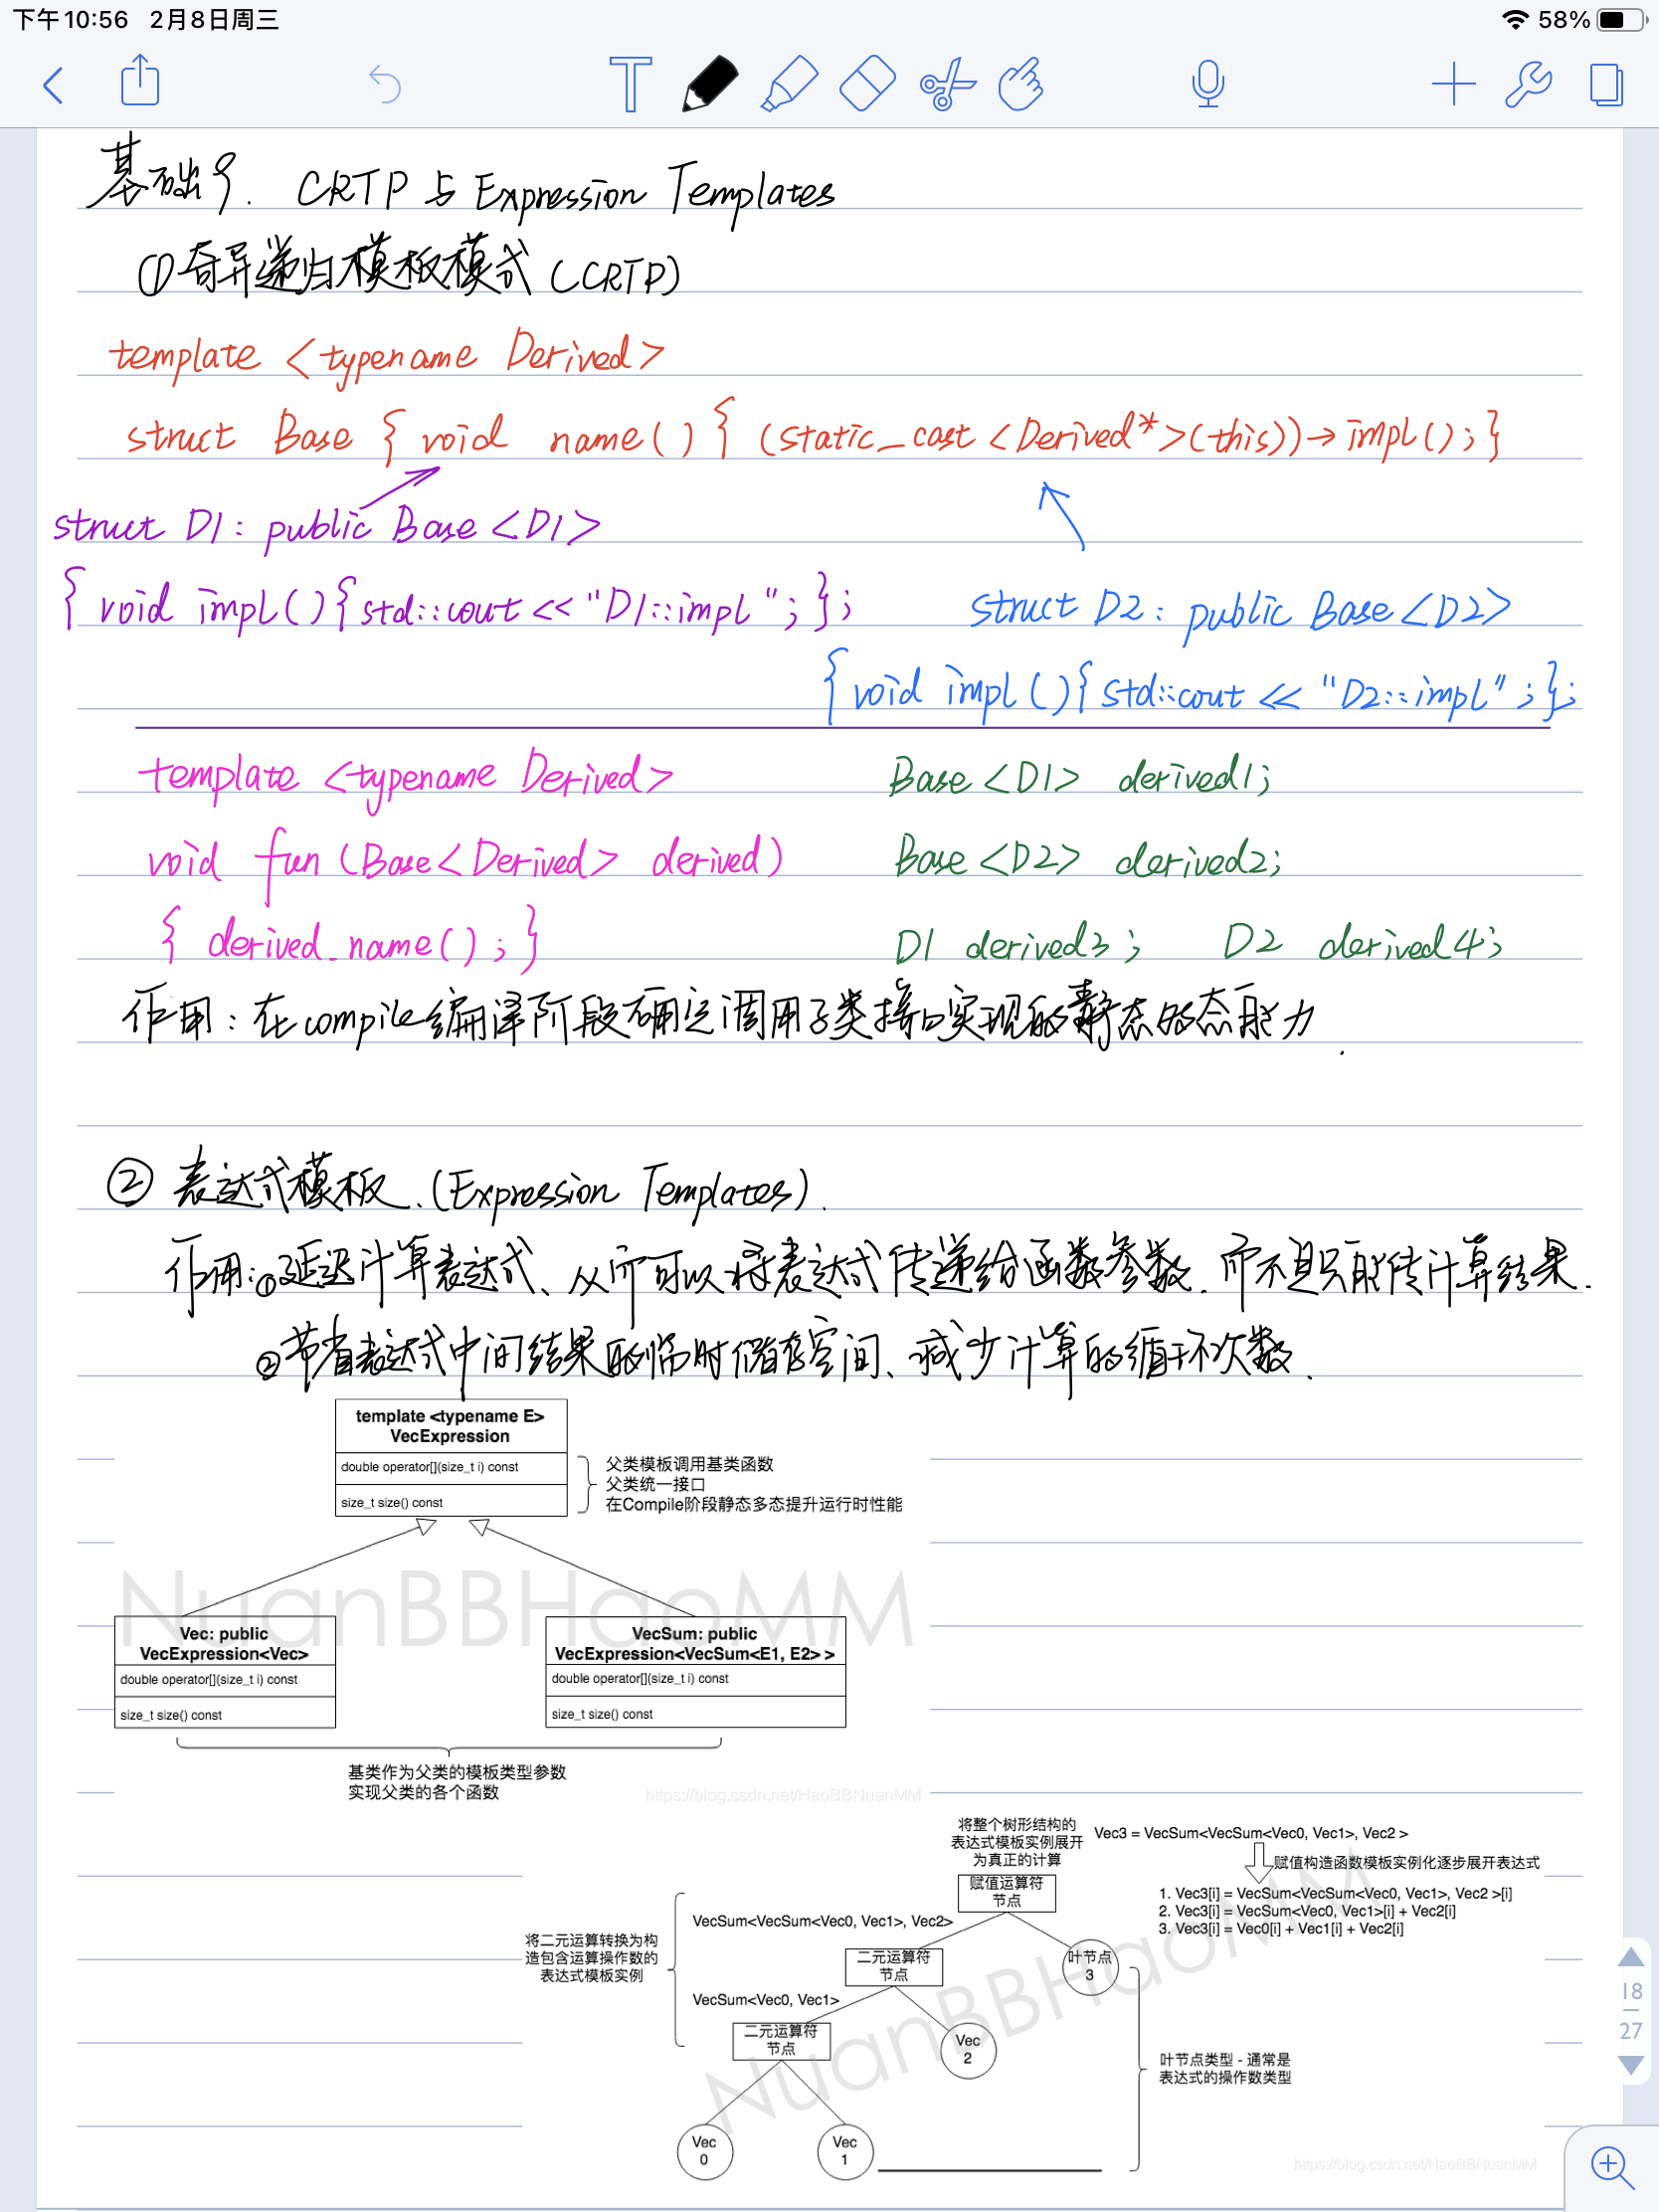 下午10:56 2月8日周三
58%
基础9. CRTP 与 Expression Templates
①奇异递归模板模式 (CRTP)
template <typename Derived>
struct Base { void name() { (static_cast <Derived*>(this))→impl(); }
struct D1: public Base <D1>
{ void impl(){ std::cout << "D1::impl"; };
struct D2: public Base <D2>
{ void impl(){ std::cout << "D2::impl"; };
template <typename Derived>
void fun (Base<Derived> derived)
{ derived.name(); }
Base <D1> derived1;
Base <D2> derived2;
D1 derived3; D2 derived4;
作用: 在compile编译阶段确定调用子类接口实现的静态的态能力.
② 表达式模板.(Expression Templates).
作用:①延迟计算表达式、从而可以将表达式传递给函数参数.而不是只能传计算结果.
②节省表达式中间结果的临时储存空间、减少计算的循环次数.
template <typename E>
VecExpression
double operator[](size_t i) const
size_t size() const
父类模板调用基类函数
父类统一接口
在Compile阶段静态多态提升运行时性能
NuanBBHaoMM
Vec: public
VecExpression<Vec>
double operator[](size_t i) const
size_t size() const
VecSum: public
VecExpression<VecSum<E1, E2> >
double operator[](size_t i) const
size_t size() const
基类作为父类的模板类型参数
实现父类的各个函数
https://blog.csdn.net/HaoBBNuanMM
将整个树形结构的
表达式模板实例展开
为真正的计算
Vec3 = VecSum<VecSum<Vec0, Vec1>, Vec2 >
赋值构造函数模板实例化逐步展开表达式
1. Vec3[i] = VecSum<VecSum<Vec0, Vec1>, Vec2 >[i]
2. Vec3[i] = VecSum<Vec0, Vec1>[i] + Vec2[i]
3. Vec3[i] = Vec0[i] + Vec1[i] + Vec2[i]
赋值运算符
节点
VecSum<VecSum<Vec0, Vec1>, Vec2>
将二元运算转换为构
造包含运算操作数的
表达式模板实例
二元运算符
节点
叶节点
3
VecSum<Vec0, Vec1>
二元运算符
节点
Vec
2
叶节点类型 - 通常是
表达式的操作数类型
Vec
0
Vec
1
NuanBBHaoMM
https://blog.csdn.net/HaoBBNuanMM
18
27